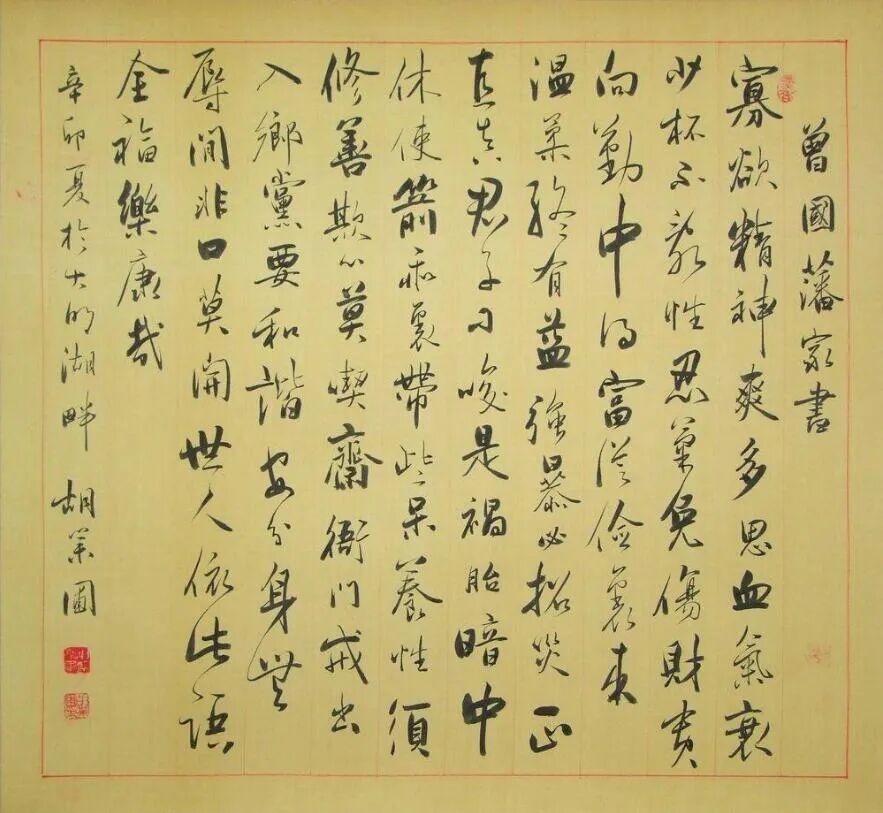 曾國藩家書
寡欲精神爽多思血氣衰
少杯不亂性忍氣免傷財貴
向勤中得富從儉裏來
温柔終有益強暴必招災正
直真君子刁唆是禍胎暗中
休使箭乖裏帶些呆養性須
修善欺心莫喫齋衙門戒出
入鄉黨要和諧安分身無
辱閒非口莫開世人依此語
全福樂康哉
辛卯夏於大明湖畔 胡